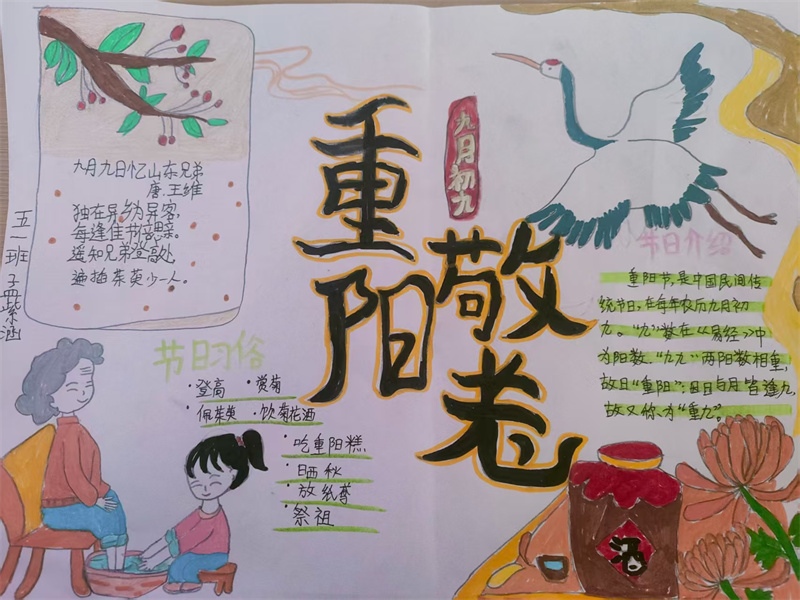 九月九日忆山东兄弟
唐.王维
独在异乡为异客,
每逢佳节倍思亲,
遥知兄弟登高处,
遍插茱萸少一人。
五一班 孟紫涵
重阳
敬老
九月初九
节日习俗
·登高 ·赏菊
·佩茱萸 ·饮菊花酒
·吃重阳糕
·晒秋
·放纸鸢
·祭祖
节日介绍
重阳节,是中国民间传
统节日,在每年农历九月初
九。"九"数在《易经》中
为阳数,"九九"两阳数相重,
故曰"重阳";日与月皆逢九,
故又称为"重九"。
酒